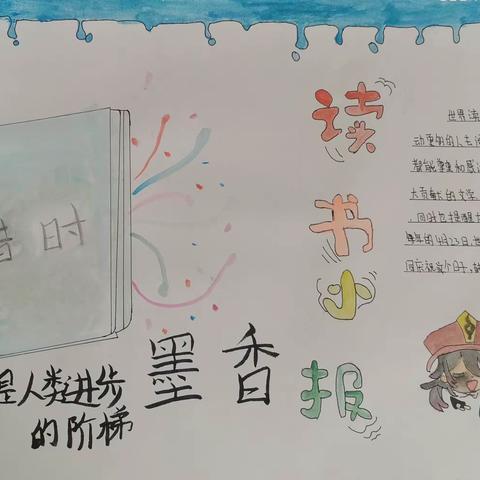 惜时
是人类进步
的阶梯
墨香
读
书
小
报
世界读
动更多的人去阅
都能尊重和感
大贡献的文学
同时也提醒
每年的4月23日,世